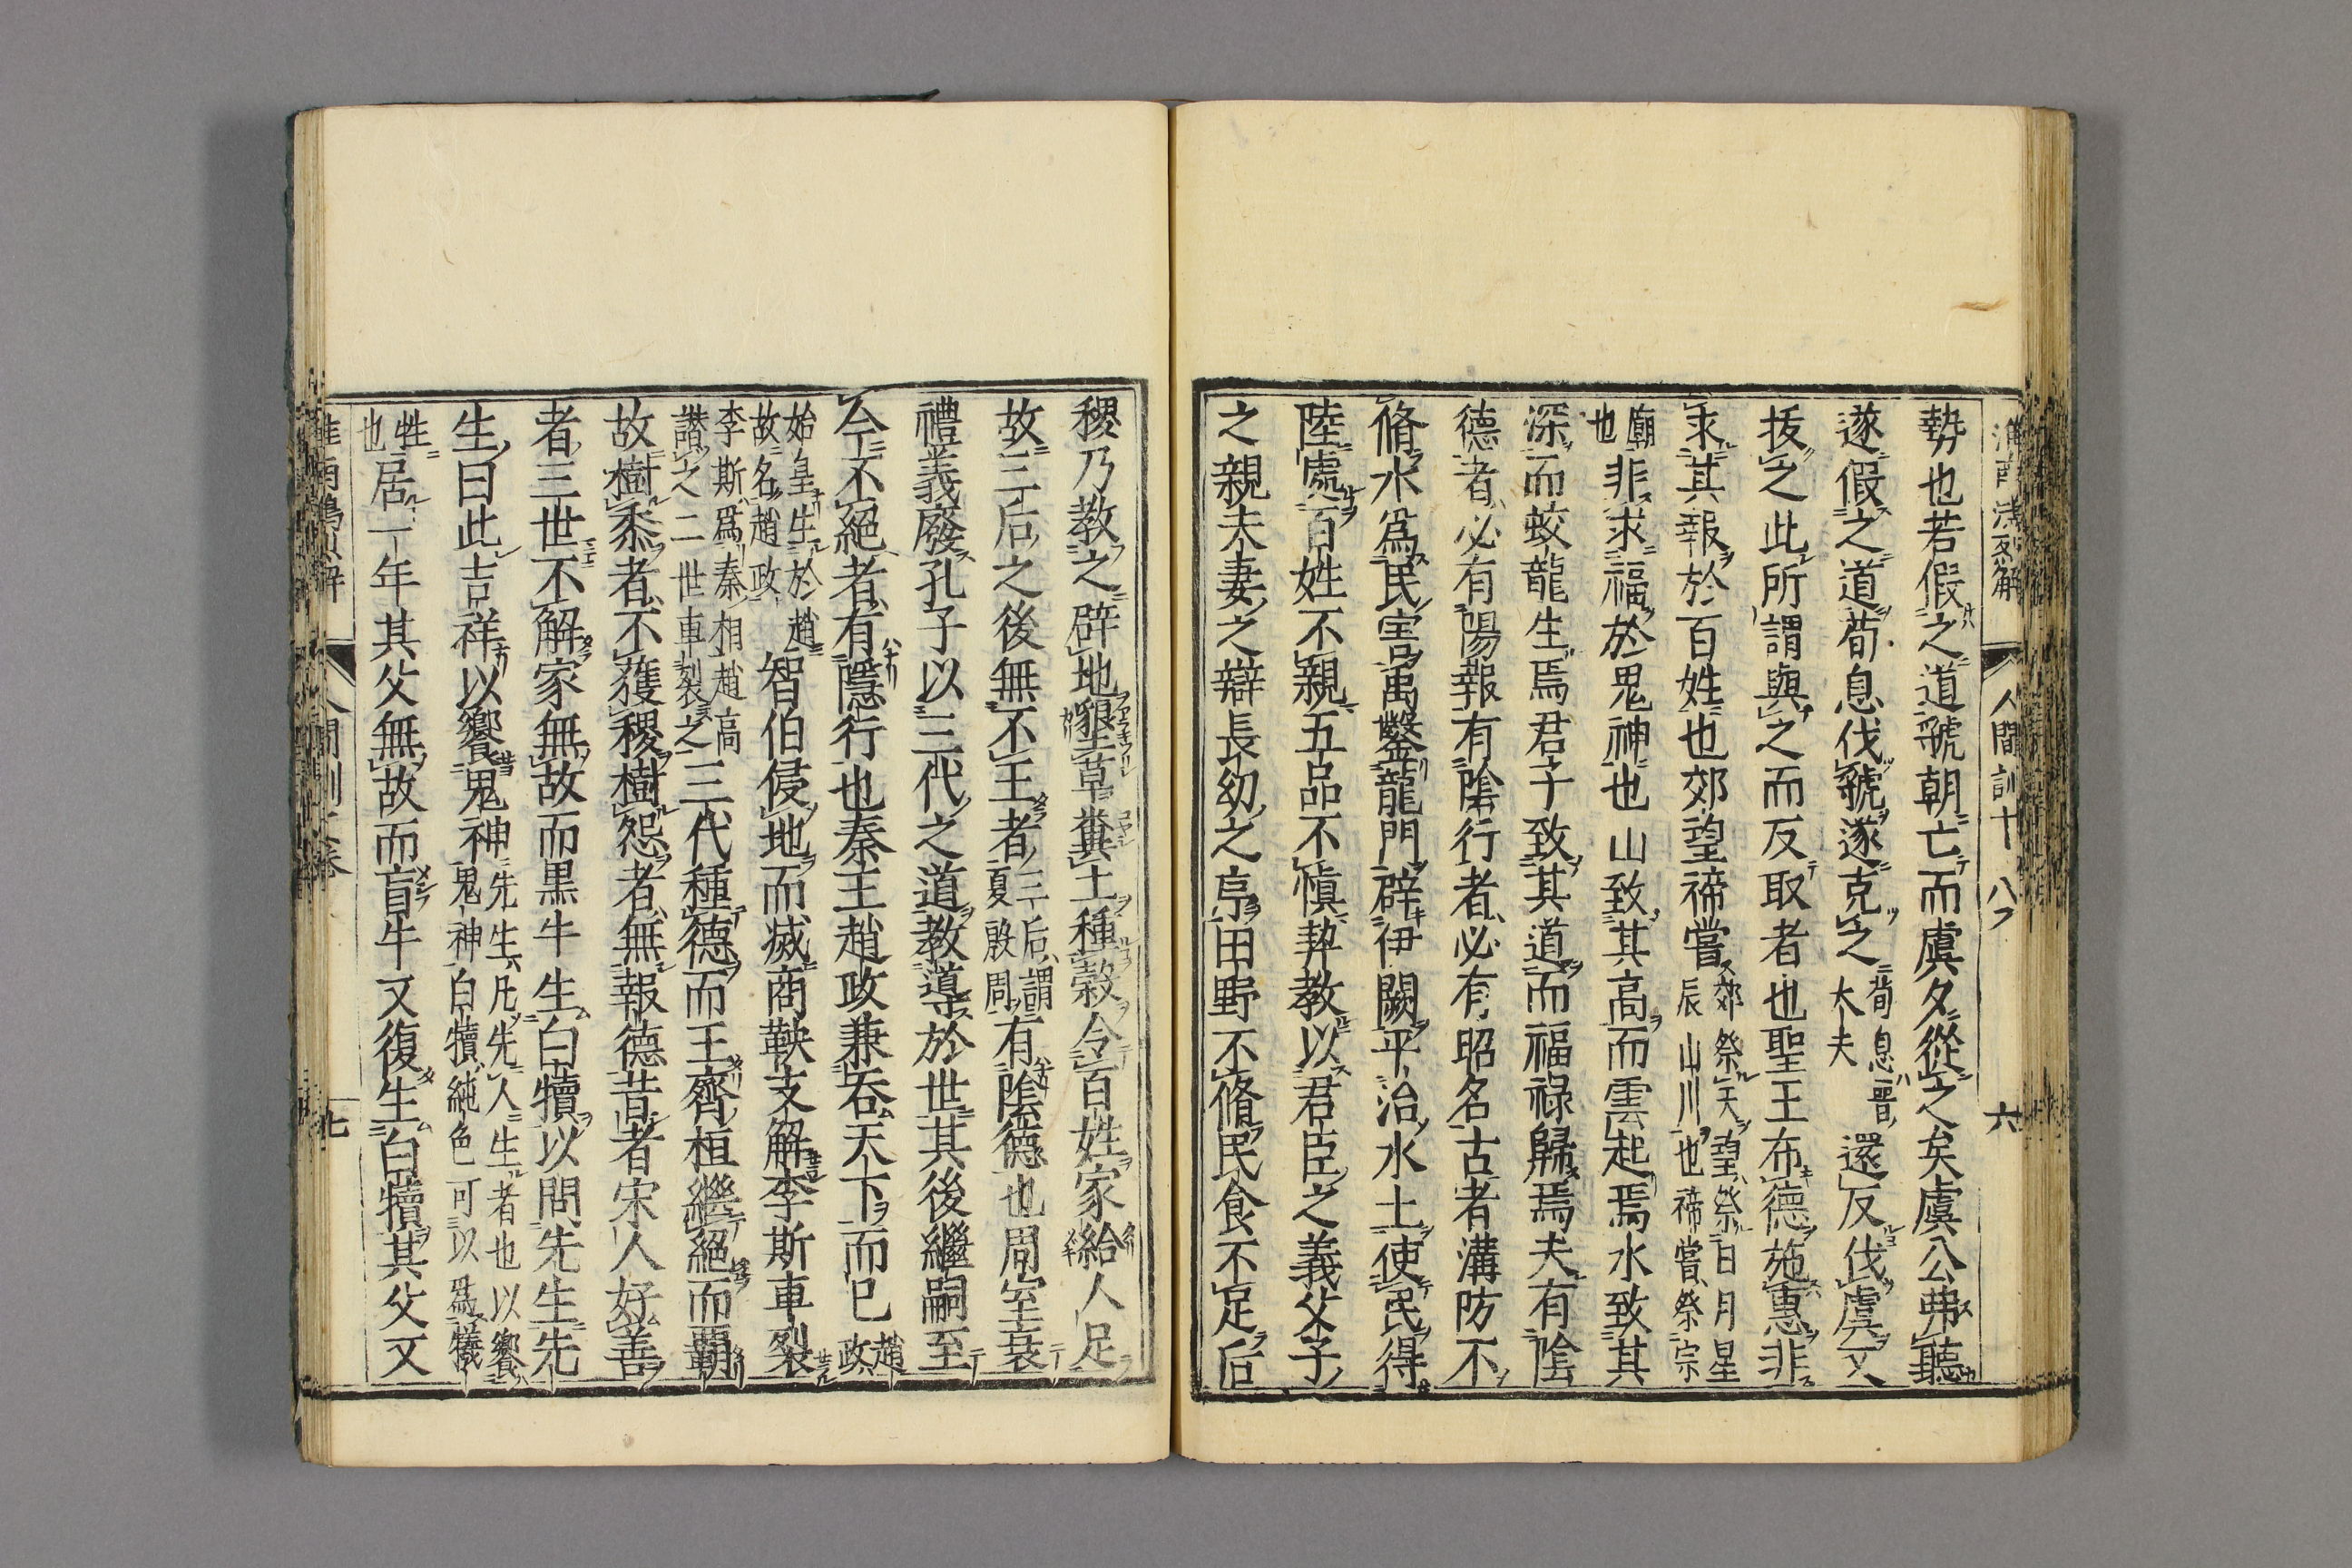 淮南鴻烈解 人間訓十八 六
勢也若假之道虢朝亡而虞夕從之矣虞公弗聽
遂假之道荀息伐虢遂克之荀息晉大夫還反伐虞又
拔之此所謂與之而反取者也聖王布德施惠非
求其報於百姓也郊望禘嘗郊祭天望祭日月星辰山川也禘嘗祭宗
廟也非求福於鬼神也山致其高而雲起焉水致其
深而蛟龍生焉君子致其道而福祿歸焉夫有陰
德者必有陽報有陰行者必有昭名古者溝防不
脩水爲民害禹鑿龍門辟伊闕平治水土使民得
陸處百姓不親五品不愼契教以君臣之義父子
之親夫妻之辯長幼之序田野不脩民食不足后
稷乃教之辟地墾草糞土種穀令百姓家給人足
故三后之後無不王者三后謂夏殷周有陰德也周室衰
禮義廢孔子以三代之道教導於世其後繼嗣至
今不絕者有隱行也秦王趙政兼吞天下而已趙政
始皇生於趙故名趙政智伯侵地而滅商鞅支解李斯車裂
李斯爲秦相趙高譛之二世車裂之三代種德而王齊桓繼絕而霸
故樹黍者不獲稷樹怨者無報德昔者宋人好善
者三世不解家無故而黑牛生白犢以問先生先
生曰此吉祥以饗鬼神先生凡先人生者也以饗鬼神白犢純色可以爲犧
牲也居一年其父無故而盲牛又復生白犢其父又
七